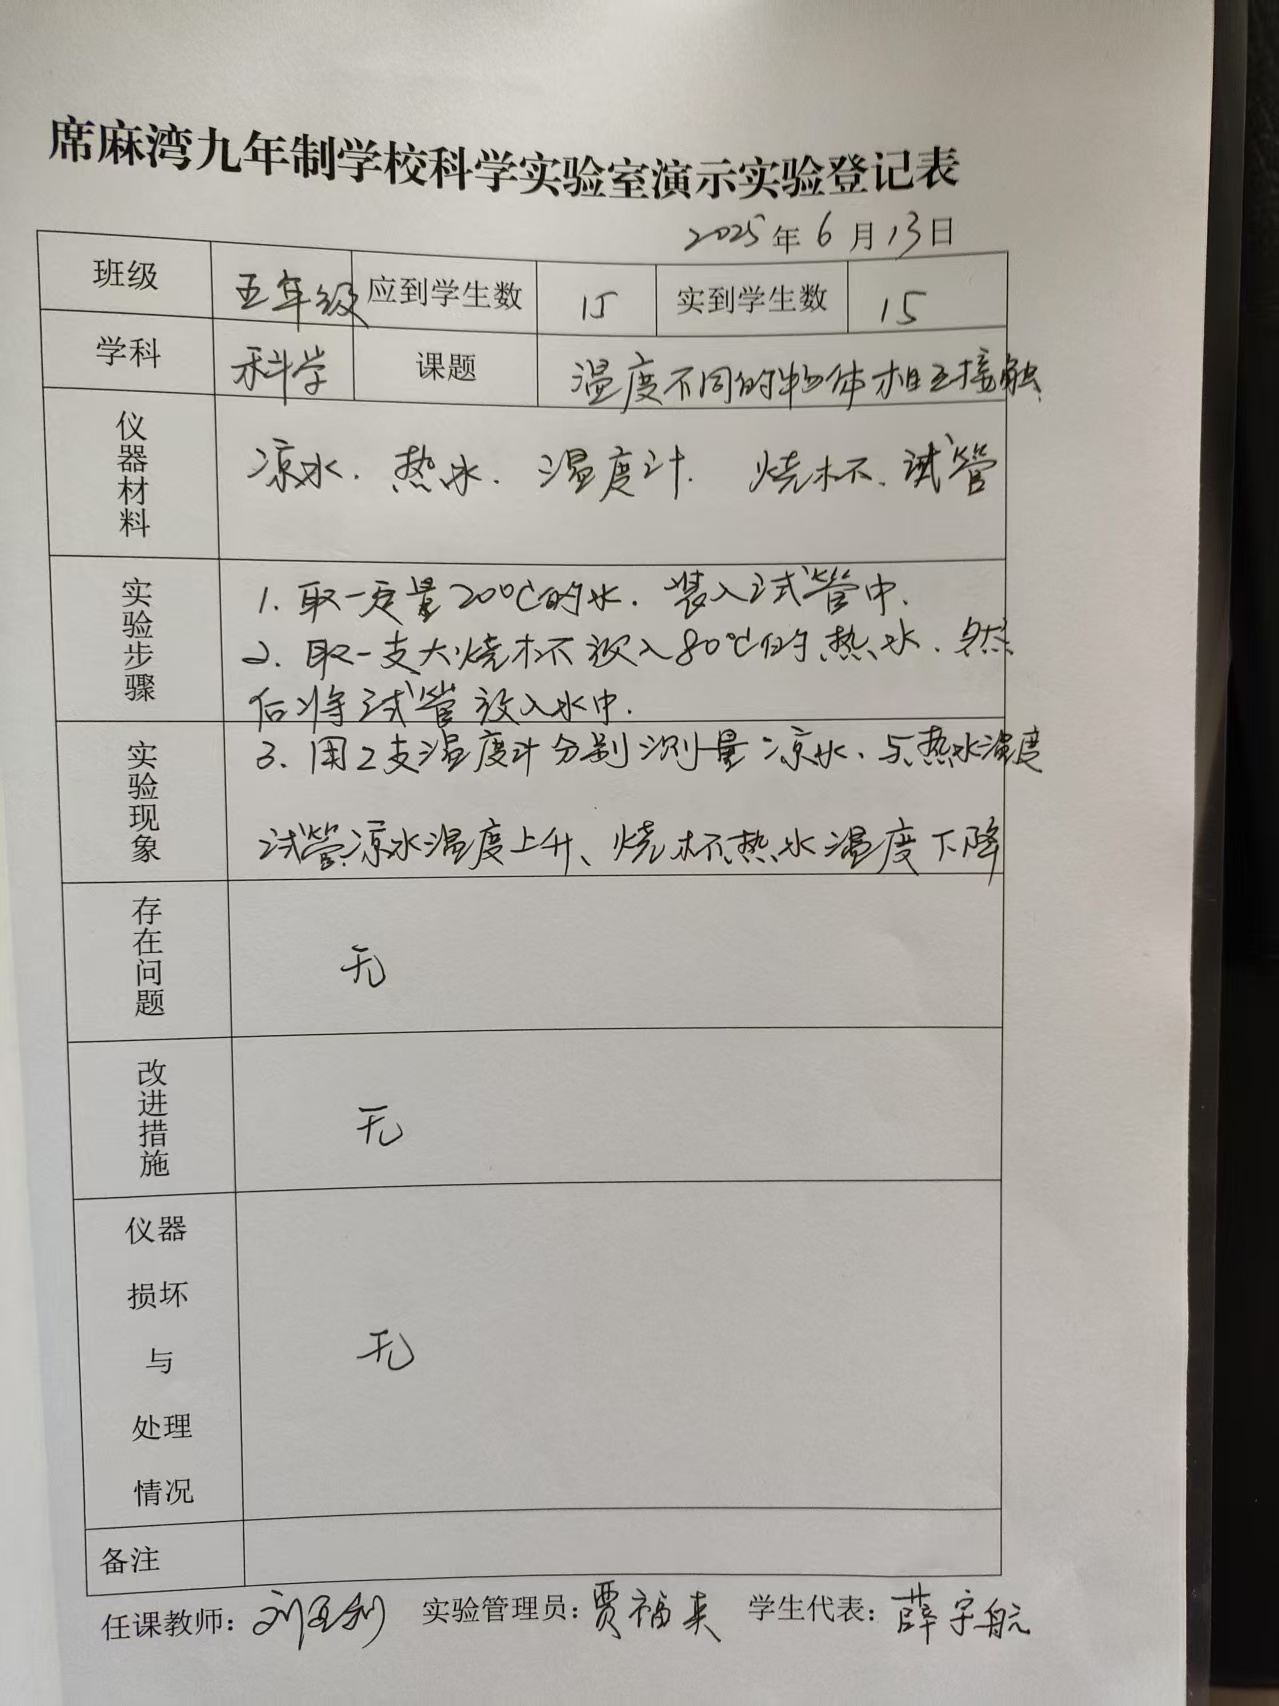 席麻湾九年制学校科学实验室演示实验登记表
2025年6月13日
班级 五年级 应到学生数 15 实到学生数 15
学科 科学 课题 温度不同的物体相互接触
仪器材料 凉水、热水、温度计、烧杯、试管
实验步骤 1. 取一定量20℃的水、装入试管中.
2. 取一支大烧杯放入80℃的热水、然
后将试管放入水中.
实验现象 3. 用2支温度计分别测量凉水、与热水温度
试管凉水温度上升、烧杯热水温度下降
存在问题 无
改进措施 无
仪器
损坏
与 无
处理
情况
备注
任课教师: 实验管理员: 贾福 学生代表: 薛宇航